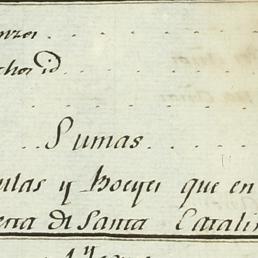 chos id
Sumas
ulas y Boeyes que en
erra de Santa Catali